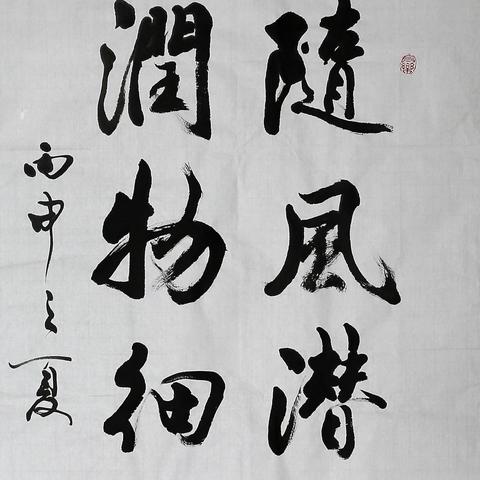 隨風潛
潤物細
丙申之夏